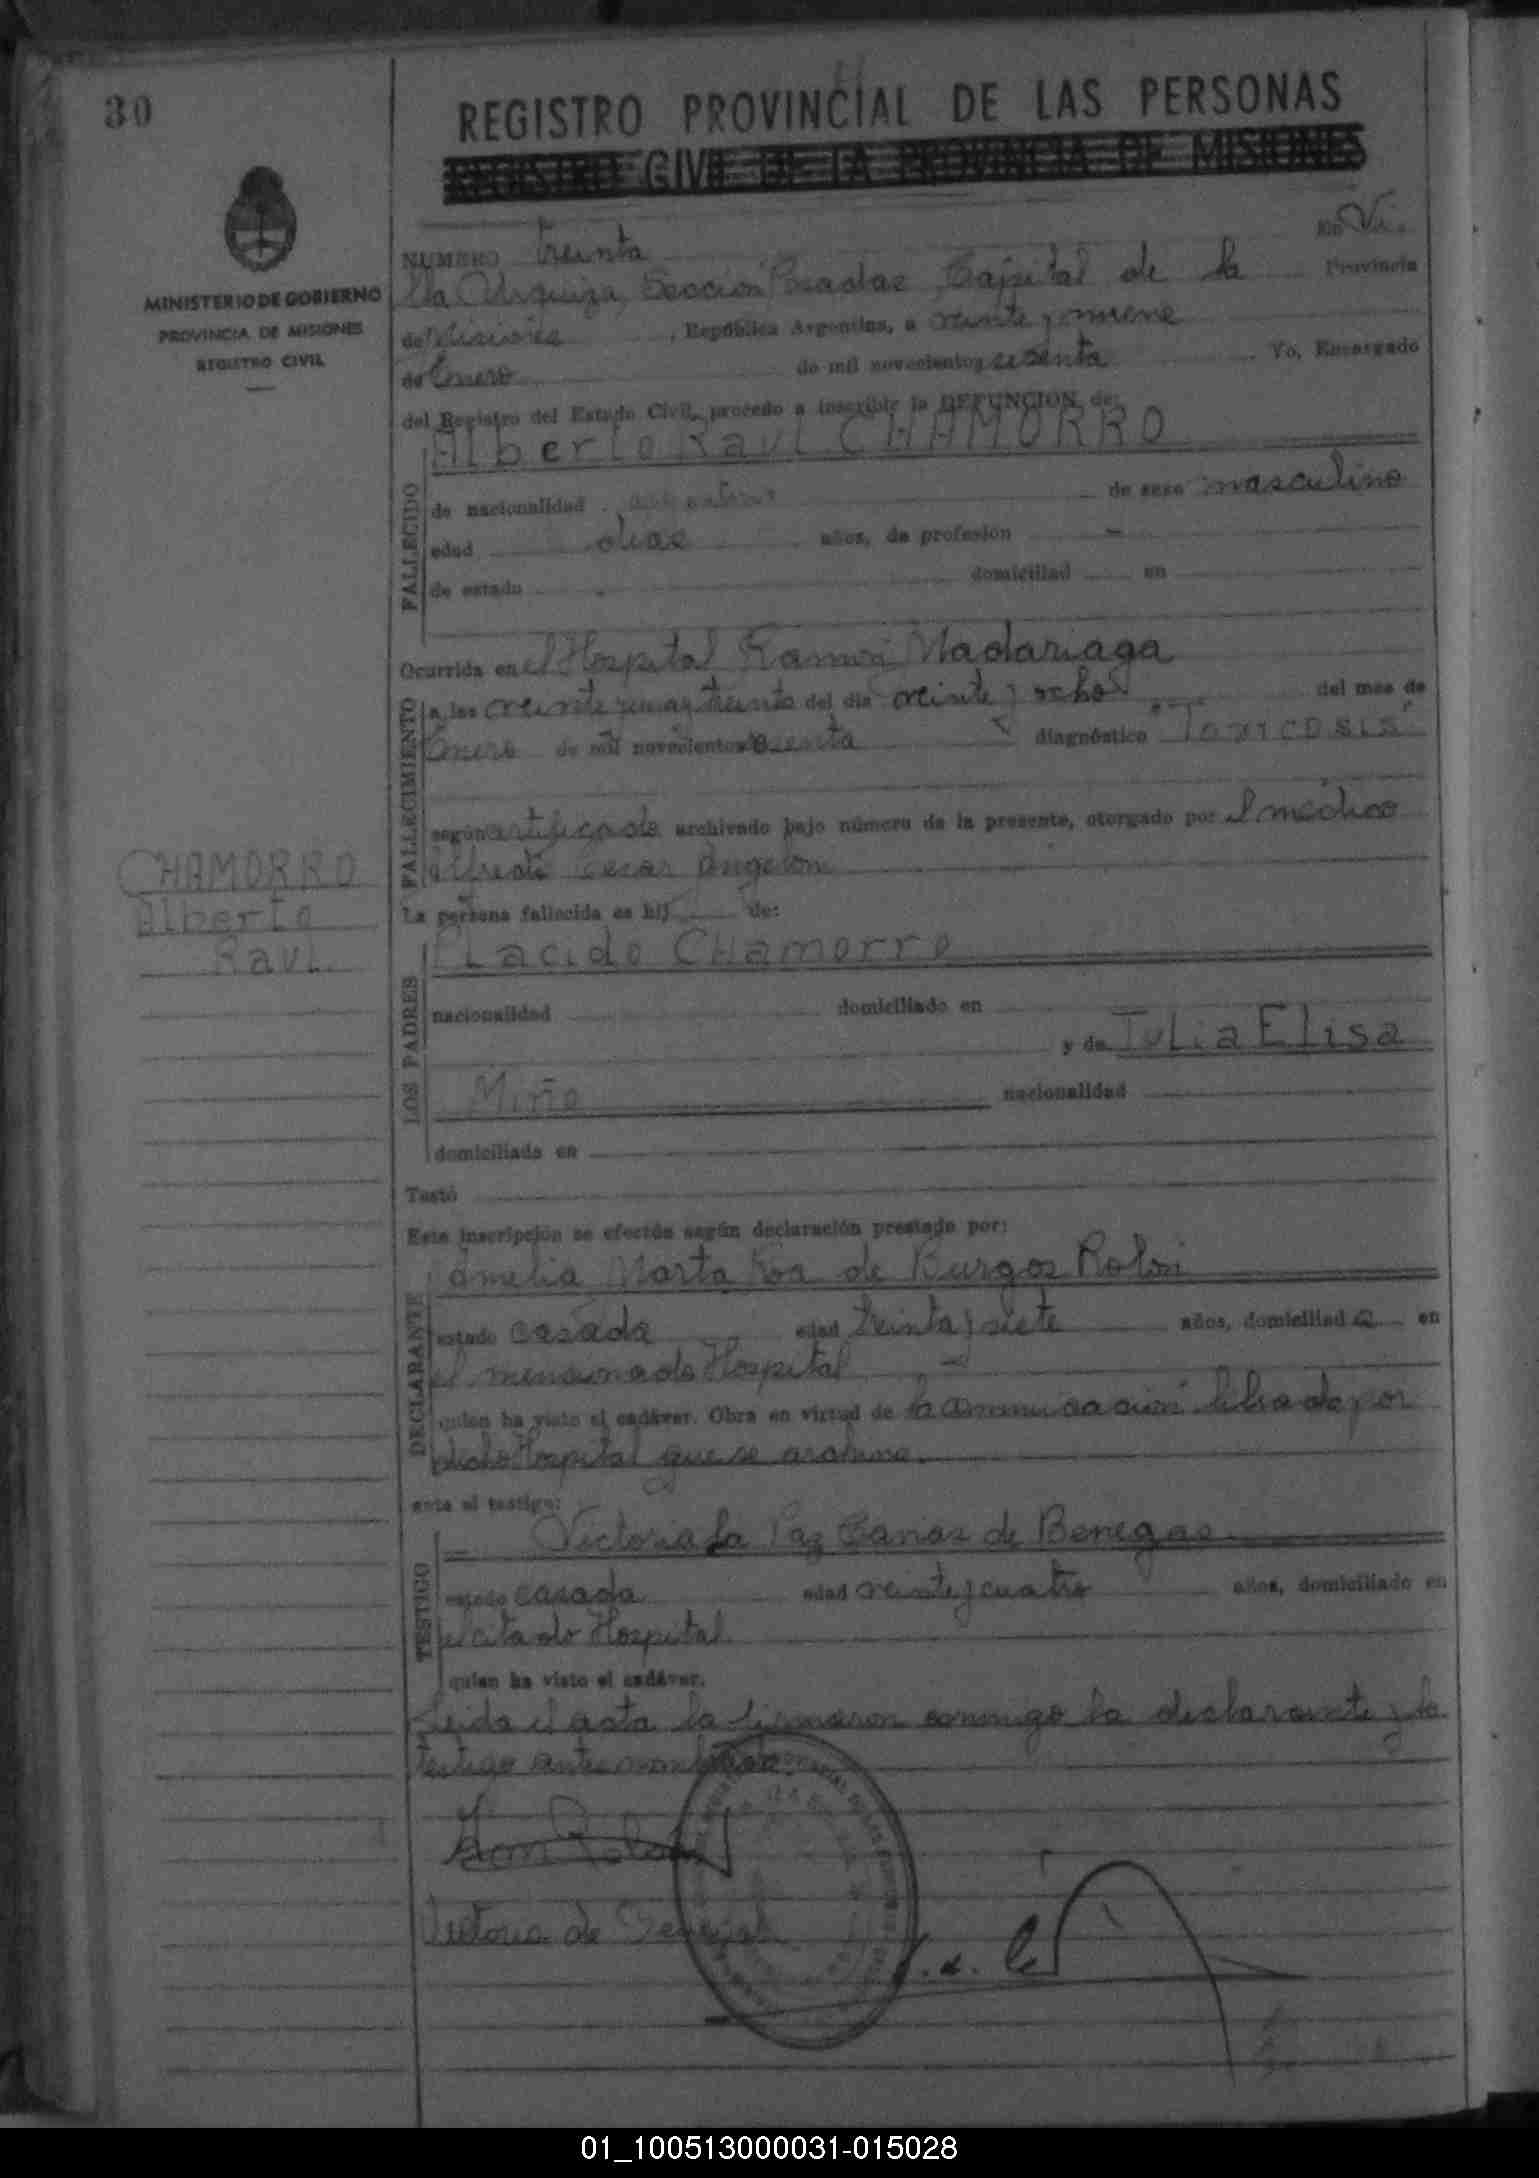 30
REGISTRO PROVINCIAL DE LAS PERSONAS
REGISTRO CIVIL DE LA PROVINCIA DE MISIONES
MINISTERIO DE GOBIERNO
PROVINCIA DE MISIONES
REGISTRO CIVIL
NUMERO treinta En Vi-
lla Urquiza, Sección Posadas, Capital de la Provincia
de Misiones, República Argentina, a veinte y nueve
de Enero de mil novecientos sesenta Yo, Encargado
del Registro del Estado Civil, procedo a inscribir la DEFUNCION de:
Alberto Raul CHAMORRO
FALLECIDO
de nacionalidad argentino de sexo masculino
edad dias años, de profesión -
de estado domiciliad en
Ocurrida en el Hospital Ramón Madariaga
FALLECIMIENTO
a las veinte y treinta del dia veinte y ocho del mes de
Enero de mil novecientos sesenta diagnóstico "Toxicosis"
según certificado archivado bajo número de la presente, otorgado por el médico
Alfredo Cesar
CHAMORRO
Alberto
Raul
La persona fallecida es hij de:
LOS PADRES
Placido Chamorro
nacionalidad domiciliado en
y de Julia Elisa
Miño nacionalidad
domiciliada en
Testó
Esta inscripción se efectúa según declaración prestada por:
DECLARANTE
Amelia Marta Roa de Burgos Rolón
estado casada edad treinta y siete años, domiciliad a en
el mencionado Hospital
quien ha visto el cadáver. Obra en virtud de la comunicación librada por
dicho Hospital que se archiva.
ante el testigo:
TESTIGO
Victoria La Paz de Benegas
estado casada edad veinte y cuatro años, domiciliado en
el citado Hospital
quien ha visto el cadáver.
Leida el acta la firmaron conmigo la declarante y la
testigo antes nombrada.
Victoria de Benegas
01_100513000031-015028